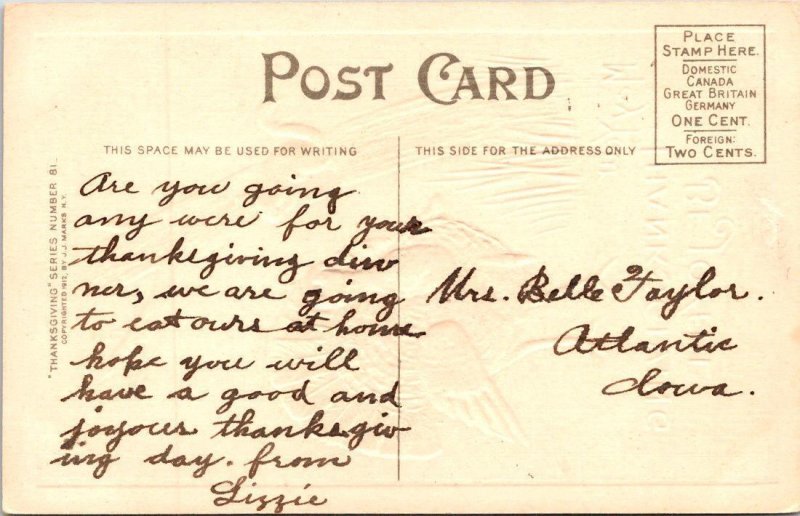 POST CARD
PLACE
STAMP HERE.
DOMESTIC
CANADA
GREAT BRITAIN
GERMANY
ONE CENT.
FOREIGN:
TWO CENTS.
THIS SPACE MAY BE USED FOR WRITING
THIS SIDE FOR THE ADDRESS ONLY
"THANKSGIVING" SERIES NUMBER 81.
COPYRIGHTED 1912, BY J.J. MARKS N.Y.
Are you going
any were for your
thanksgiving din
ner, we are going
to eat ours at home
hope you will
have a good and
joyous thanksgiv
ing day. from
Lizzie
Mrs. Belle Taylor.
Atlantic
Iowa.